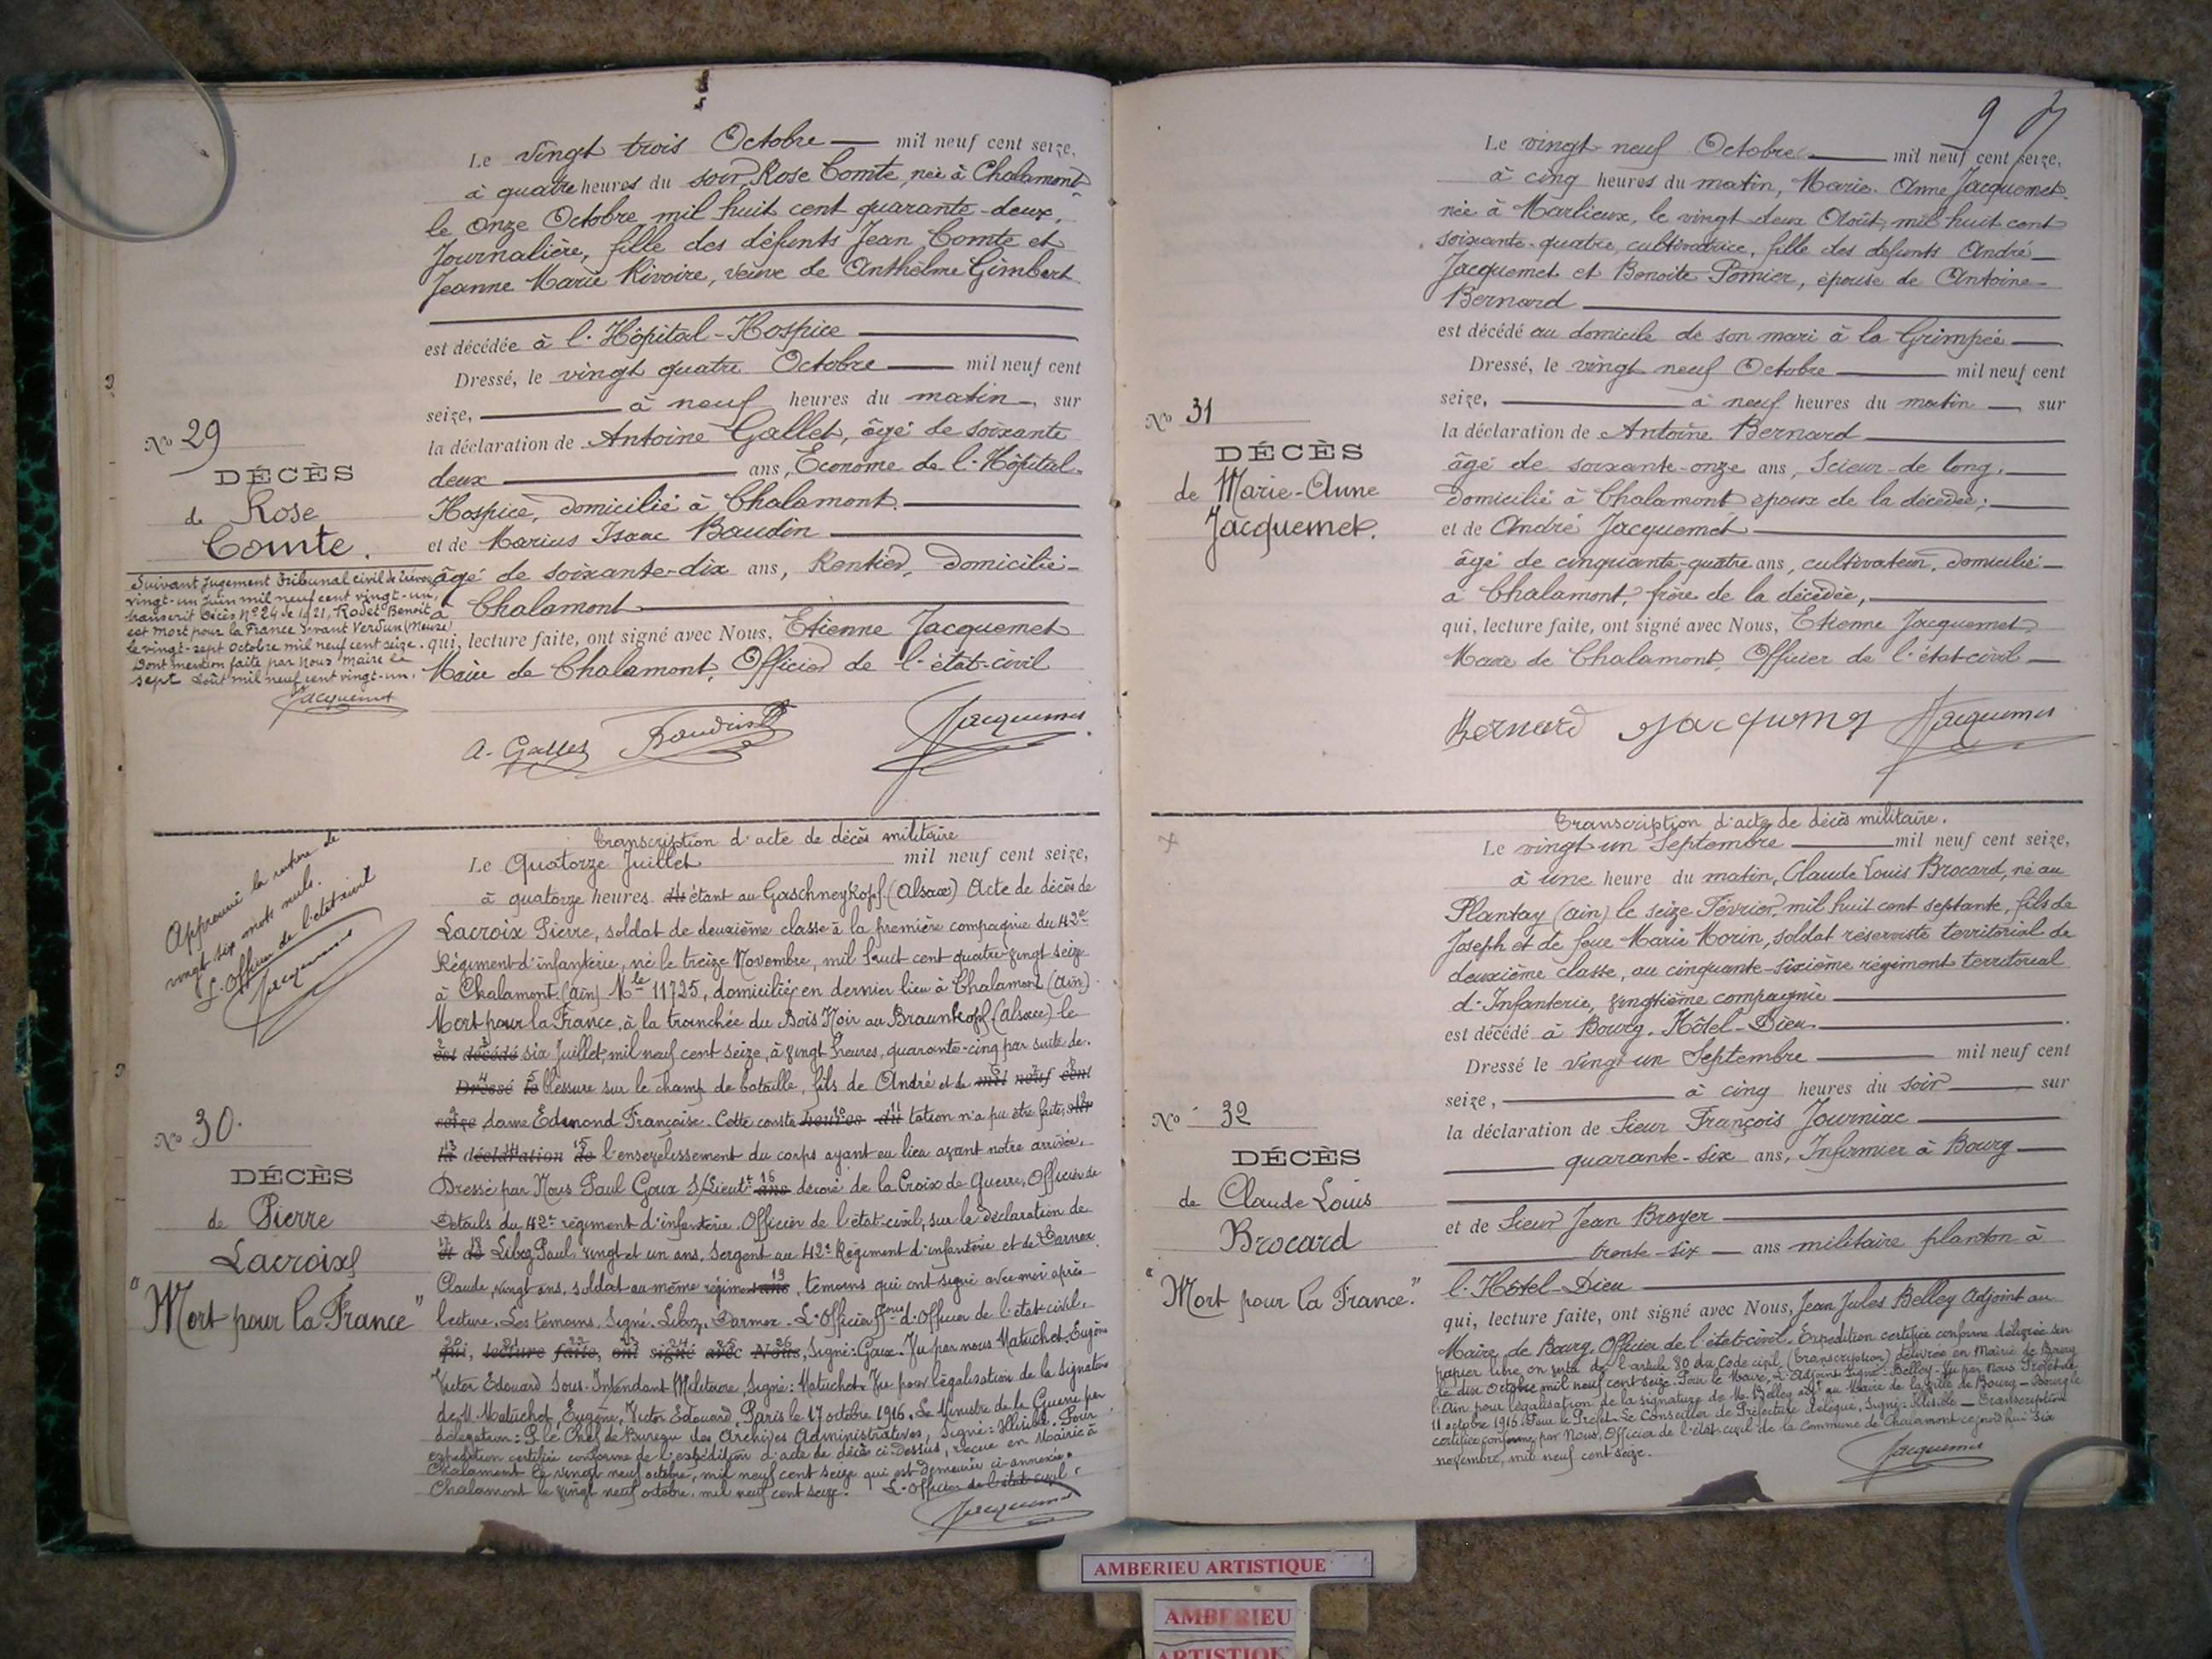 Le vingt trois Octobre — mil neuf cent seize,
à quatre heures du soir, Rose Comte, née à Chalamont
le onze Octobre mil huit cent quarante-deux,
Journalière, fille des défunts Jean Comte et
Jeanne Marie Rivoire, veuve de Anthelme Gimbert
est décédée à l'Hôpital-Hospice
Dressé, le vingt quatre Octobre — mil neuf cent
seize, — à neuf heures du matin —, sur
la déclaration de Antoine Gallet, âgé de soixante
deux — ans, Econome de l'Hôpital-
Hospice, domicilié à Chalamont.
et de Marius Isaac Baudin
âgé de soixante-dix ans, Rentier, domicilié
à Chalamont
qui, lecture faite, ont signé avec Nous, Etienne Jacquemet
Maire de Chalamont, Officier de l'état-civil
A. Gallet Baudin Jacquemet
No 29
DÉCÈS
de Rose
Comte.
Suivant Jugement Tribunal Civil de Trévoux
vingt-un Juin mil neuf cent vingt-un,
transcrit Décès No 24 de 1921, Rodet Benoit
est mort pour la France devant Verdun (Meuse)
le vingt-sept Octobre mil neuf cent seize.
Dont mention faite par nous Maire le
sept Août mil neuf cent vingt-un.
Jacquemet
Transcription d'acte de décès militaire
Le Quatorze Juillet mil neuf cent seize,
à quatorze heures du étant au Gaschneykopf (Alsace) Acte de décès de
Lacroix Pierre, soldat de deuxième classe à la première compagnie du 42e
Régiment d'infanterie, né le treize Novembre, mil huit cent quatre-vingt seize
à Chalamont (Ain) Mle 11725, domicilié en dernier lieu à Chalamont (Ain)
Mort pour la France, à la tranchée du Bois Noir au Braunkopf (Alsace) le
est décédé six Juillet, mil neuf cent seize, à vingt heures, quarante-cinq par suite de
Dressé le blessure sur le champ de bataille, fils de André et de mil neuf cent
seize dame Edmond Françoise. Cette consta heures du tation n'a pu être faite, sur
la déclaration de l'ensevelissement du corps ayant eu lieu avant notre arrivée.
Dressé par Nous Paul Goux S/Lieutt ans décoré de la Croix de Guerre, Officier de
Détails du 42e régiment d'infanterie. Officier de l'état-civil, sur la déclaration de
et de Liboz Paul, vingt et un ans, Sergent au 42e Régiment d'infanterie et de Darmez
Claude, vingt ans, soldat au même régiment ans, témoins qui ont signé avec moi après
lecture. Les témoins, Signé: Liboz, Darmez. L'Officier ffons d'Officier de l'état-civil.
qui, lecture faite, ont signé avec Nous, Signé: Goux. Vu par nous Matuchet, Eugène
Victor Edouard Sous-Intendant Militaire, Signé: Matuchet. Vu pour légalisation de la signature
de M. Matuchet, Eugène, Victor Edouard, Paris le 17 octobre 1916. Le Ministre de la Guerre par
délégation: P. le Chef de Bureau des Archives Administratives, Signé: Illisible. Pour
expédition certifiée conforme de l'expédition d'acte de décès ci-dessus, reçue en Mairie à
Chalamont le vingt neuf octobre, mil neuf cent seize qui est demeurée ci-annexée.
Chalamont le vingt neuf octobre, mil neuf cent seize. L'Officier de l'état-civil.
Jacquemet
Approuvé la rature de
vingt six mots nuls.
L'Officier de l'état-civil
Jacquemet
No 30.
DÉCÈS
de Pierre
Lacroix
"Mort pour la France"
9
Le vingt neuf Octobre — mil neuf cent seize,
à cinq heures du matin, Marie-Anne Jacquemet
née à Marlieux, le vingt deux Août, mil huit cent
soixante-quatre, cultivatrice, fille des défunts André
Jacquemet et Benoite Pomier, épouse de Antoine
Bernard
est décédé au domicile de son mari à la Grimpée
Dressé, le vingt neuf Octobre — mil neuf cent
seize, — à neuf heures du matin —, sur
la déclaration de Antoine Bernard
âgé de soixante-onze ans, Scieur de long,
domicilié à Chalamont époux de la décédée;
et de André Jacquemet
âgé de cinquante-quatre ans, cultivateur, domicilié
à Chalamont, frère de la décédée,
qui, lecture faite, ont signé avec Nous, Etienne Jacquemet,
Maire de Chalamont, Officier de l'état-civil
Bernard Jacquemet Jacquemet
No 31
DÉCÈS
de Marie-Anne
Jacquemet.
Transcription d'acte de décès militaire.
Le vingt un Septembre — mil neuf cent seize,
à une heure du matin, Claude Louis Brocard, né au
Plantay (Ain) le seize Février, mil huit cent septante, fils de
Joseph et de feue Marie Morin, soldat réserviste territorial de
deuxième classe, au cinquante-sixième régiment territorial
d'Infanterie, vingtième compagnie
est décédé à Bourg, Hôtel-Dieu.
Dressé le vingt un Septembre — mil neuf cent
seize, — à cinq heures du soir — sur
la déclaration de Sieur François Journiac
quarante-six ans, Infirmier à Bourg
et de Sieur Jean Broyer
trente-six — ans militaire planton à
l'Hôtel-Dieu
qui, lecture faite, ont signé avec Nous, Jean Jules Belley Adjoint au
Maire de Bourg, Officier de l'état-civil. Expédition certifiée conforme délivrée sur
papier libre, en vertu de l'article 80 du Code civil, (transcription) délivrée en Mairie de Bourg
le dix Octobre mil neuf cent seize. Pour le Maire, L'Adjoint Signé: Belley. Vu par Nous Préfet de
l'Ain pour légalisation de la signature de M. Belley adjt au Maire de la ville de Bourg — Bourg le
11 octobre 1916. Pour le Préfet. Le Conseiller de Préfecture délégué, Signé: Illisible — Transcription
certifiée conforme par Nous, Officier de l'état-civil de la Commune de Chalamont cejourd'hui six
novembre, mil neuf cent seize.
Jacquemet
No 32
DÉCÈS
de Claude Louis
Brocard
"Mort pour la France."
AMBERIEU ARTISTIQUE
AMBERIEU
ARTISTIQUE